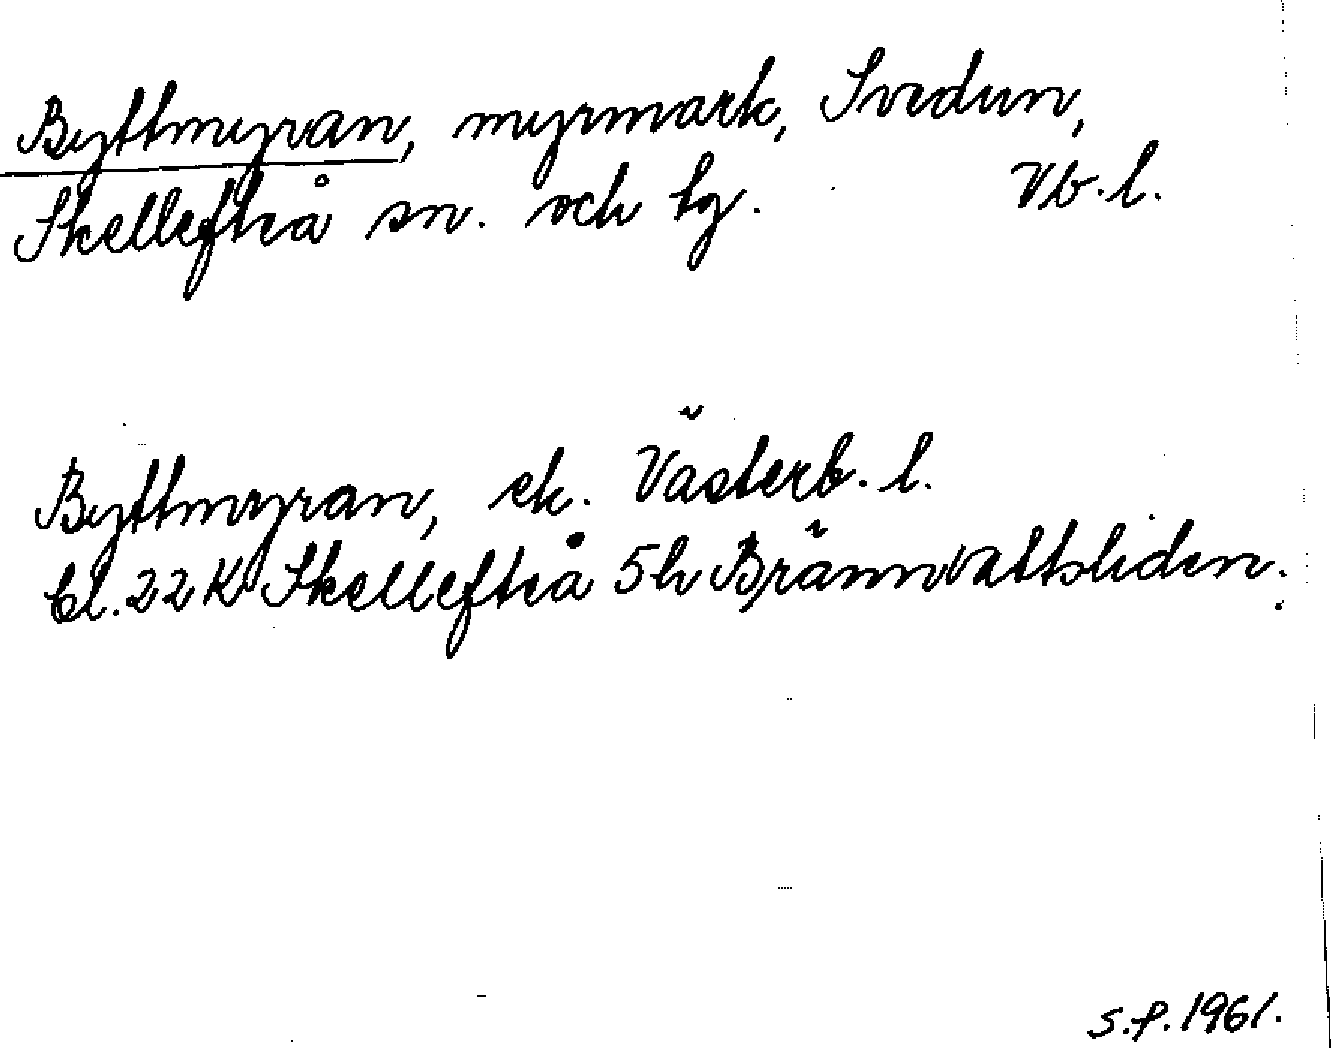 Byttmyran, myrmark, Svedun,
Skellefteå sn. och tg. Vb. l.
Byttmyran, ek. Västerb. l.
Bl. 22 K Skellefteå 5h Brännvattsliden.
S.P. 1961.